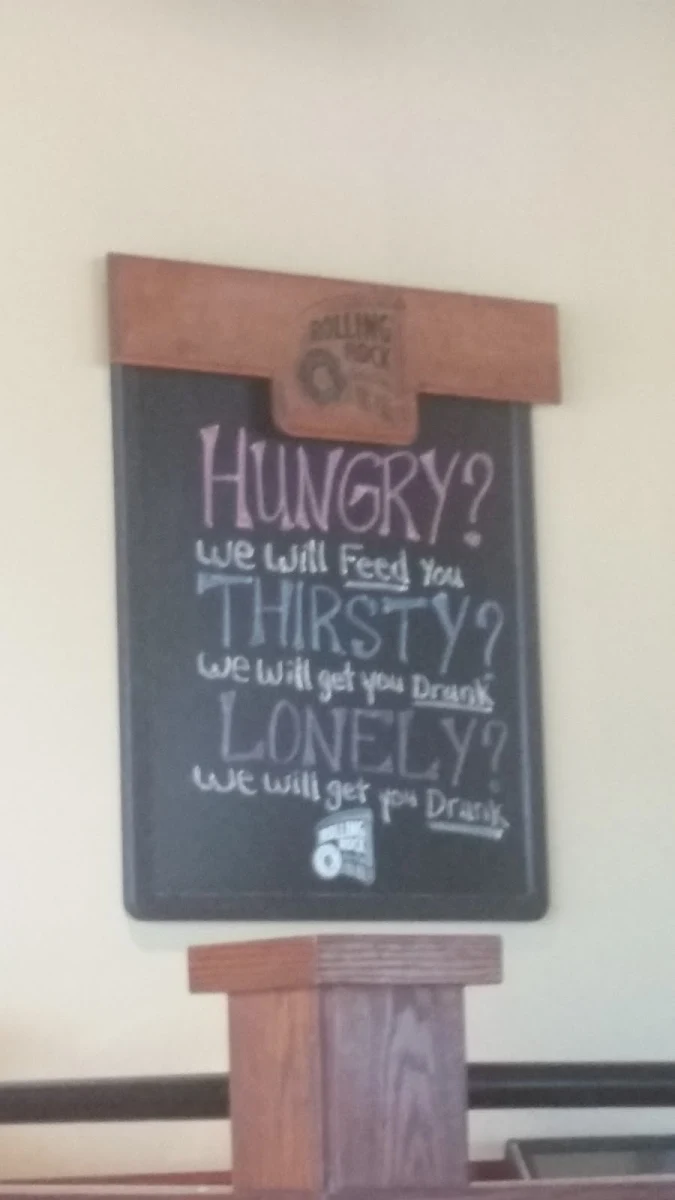 ROLLING
ROCK
HUNGRY?
we will Feed You
THIRSTY?
we will get you Drunk
LONELY?
we will get you Drunk
ROLLING
ROCK